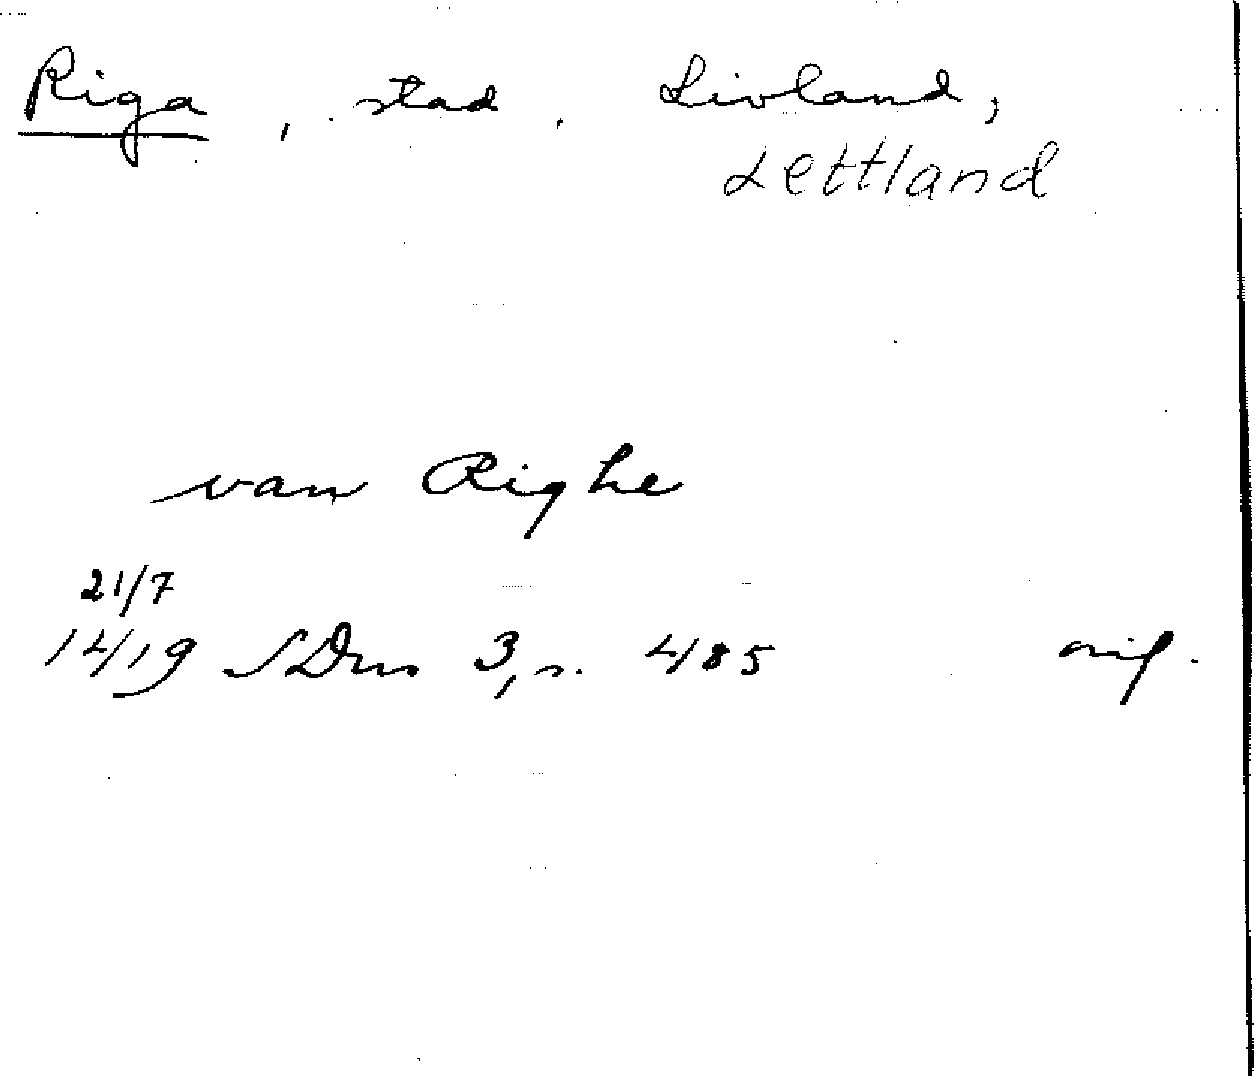 Riga, stad. Livland,
Lettland
van Righe
21/7
1419 SDns 3, s. 485 orig.